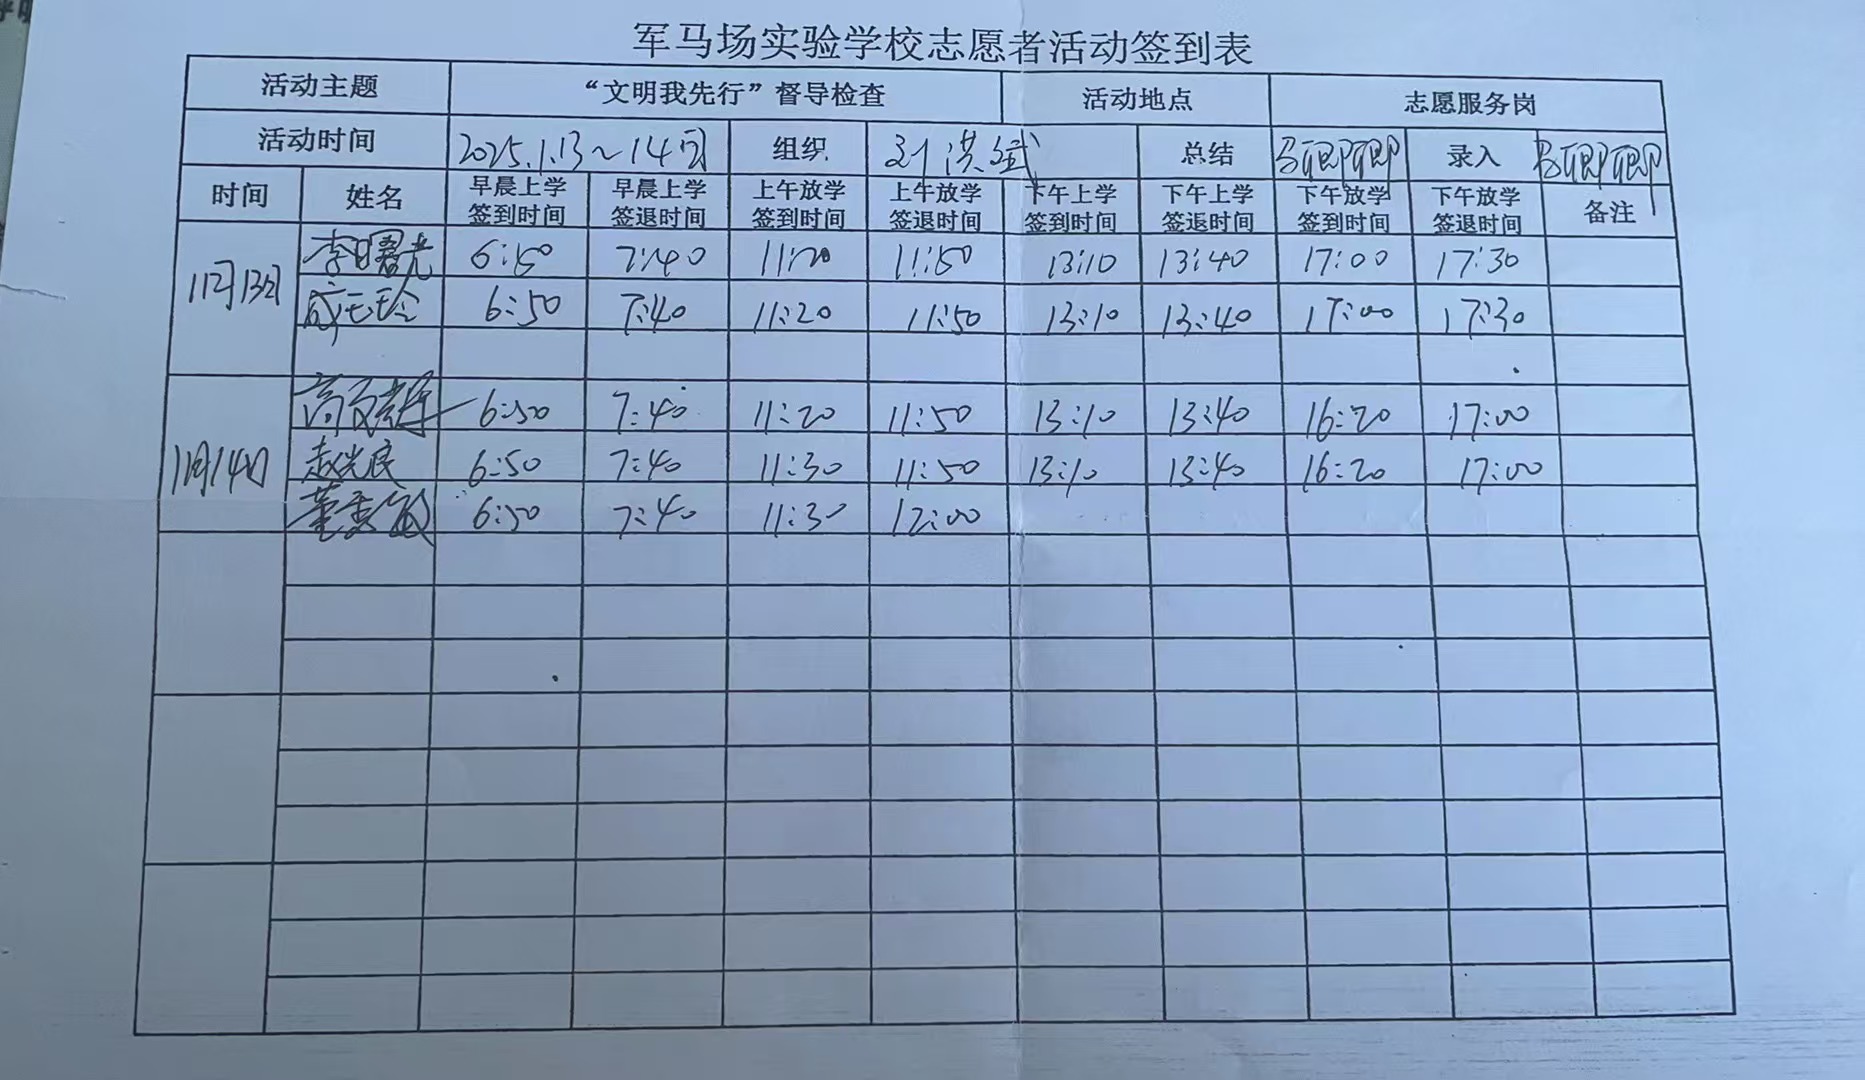 军马场实验学校志愿者活动签到表
活动主题 “文明我先行”督导检查 活动地点 志愿服务岗
活动时间 2025.1.13～14日 组织 刘洪斌 总结 录入
时间 姓名 早晨上学签到时间 早晨上学签退时间 上午放学签到时间 上午放学签退时间 下午上学签到时间 下午上学签退时间 下午放学签到时间 下午放学签退时间 备注
李曙光 6:50 7:40 11:20 11:50 13:10 13:40 17:00 17:30
13日 6:50 7:40 11:20 11:50 13:10 13:40 17:00 17:30
6:50 7:40 11:20 11:50 13:10 13:40 16:20 17:00
14日 赵光民 6:50 7:40 11:30 11:50 13:10 13:40 16:20 17:00
董 6:50 7:40 11:30 12:00